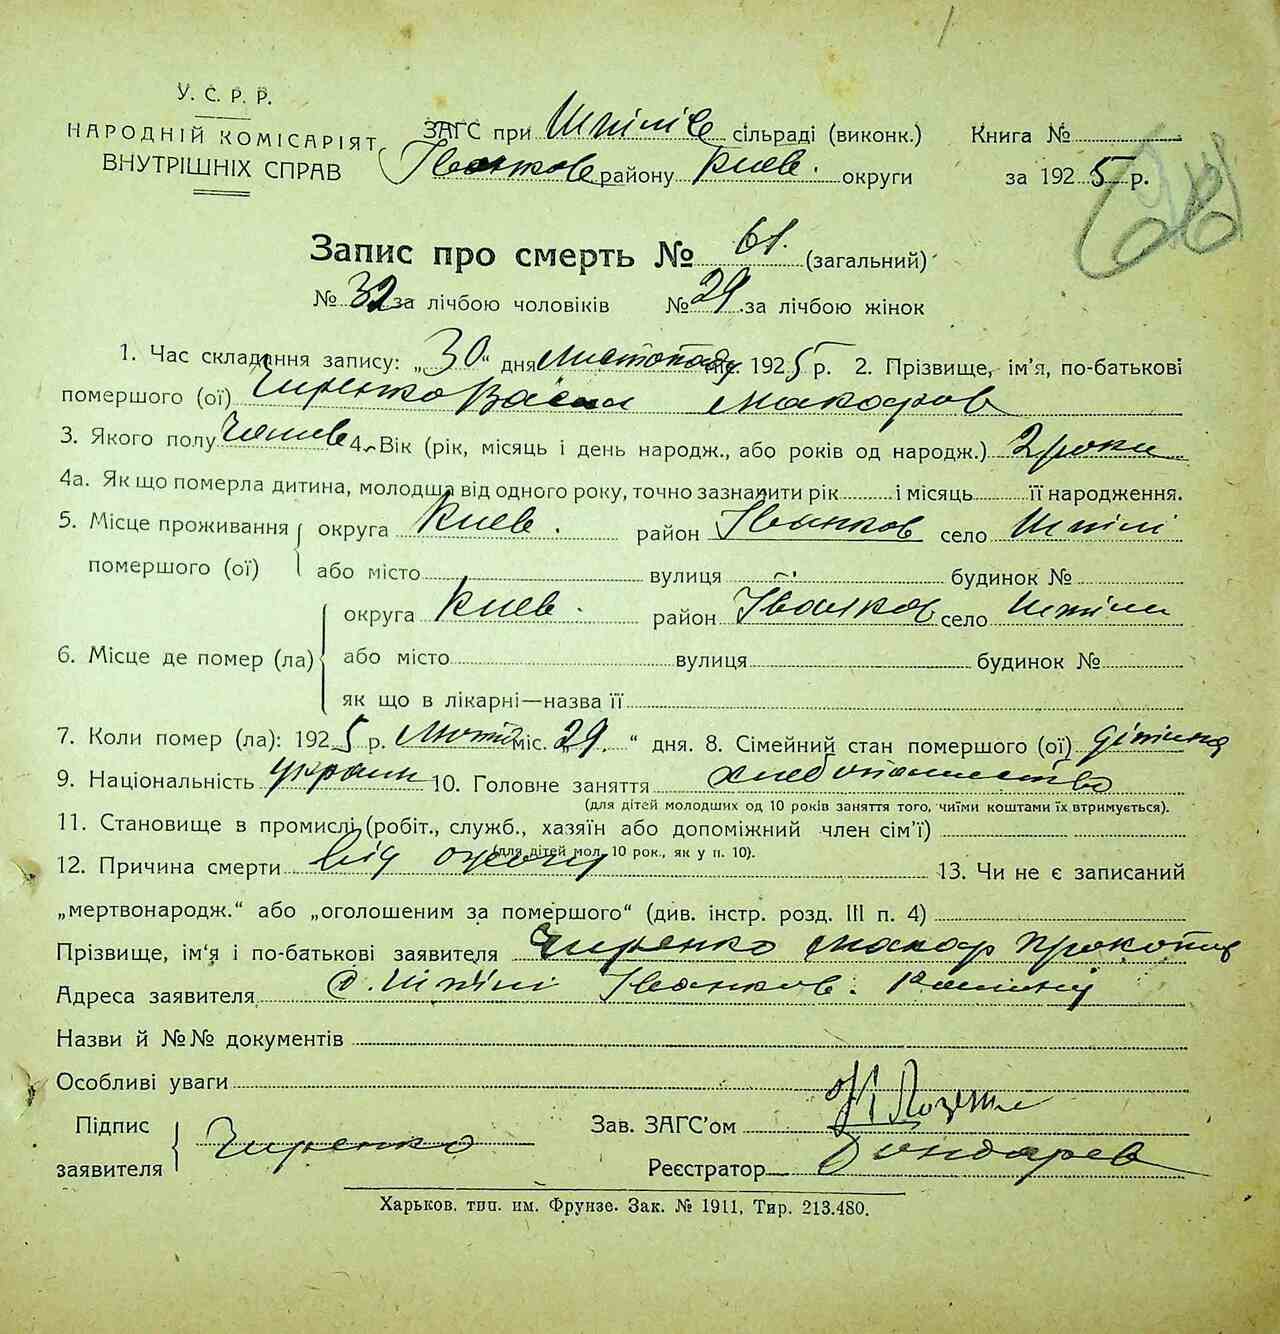 У. С. Р. Р.
НАРОДНІЙ КОМІСАРІЯТ
ВНУТРІШНІХ СПРАВ
ЗАГС при Шпілів сільраді (виконк.)
Іванков району Киев. округи
Книга №
за 1925 р.
Запис про смерть № 61. (загальний)
№ 32 за лічбою чоловіків № 29 за лічбою жінок
1. Час складання запису: „30“ дня Листопаду міс. 1925 р. 2. Прізвище, ім'я, по-батькові
помершого (ої) Чиренко Васил Макаров
3. Якого полу 4. Вік (рік, місяць і день народж., або років од народж.) 2 роки
4а. Як що померла дитина, молодша від одного року, точно зазначити рік і місяць її народження.
5. Місце проживання помершого (ої) округа Киев. район Іванков село Шпілі
або місто вулиця будинок №
6. Місце де помер (ла) округа Киев. район Іванков село Шпіли
або місто вулиця будинок №
як що в лікарні—назва її
7. Коли помер (ла): 1925 р. міс. 29. “ дня. 8. Сімейний стан помершого (ої) дітина
9. Національність украин 10. Головне заняття хлебопашество
(для дітей молодших од 10 років заняття того, чиїми коштами їх втримується).
11. Становище в промислі (робіт., служб., хазяїн або допоміжний член сім'ї)
(для дітей мол. 10 рок., як у п. 10).
12. Причина смерти від 13. Чи не є записаний
„мертвонародж.“ або „оголошеним за помершого“ (див. інстр. розд. III п. 4)
Прізвище, ім'я і по-батькові заявителя Чиренко Макар Прокопив
Адреса заявителя с. Шпілі Іванков.
Назви й №№ документів
Особливі уваги
Підпис заявителя Чиренко
Зав. ЗАГС'ом
Реєстратор Бондарев
Харьков. тип. им. Фрунзе. Зак. № 1911, Тир. 213.480.